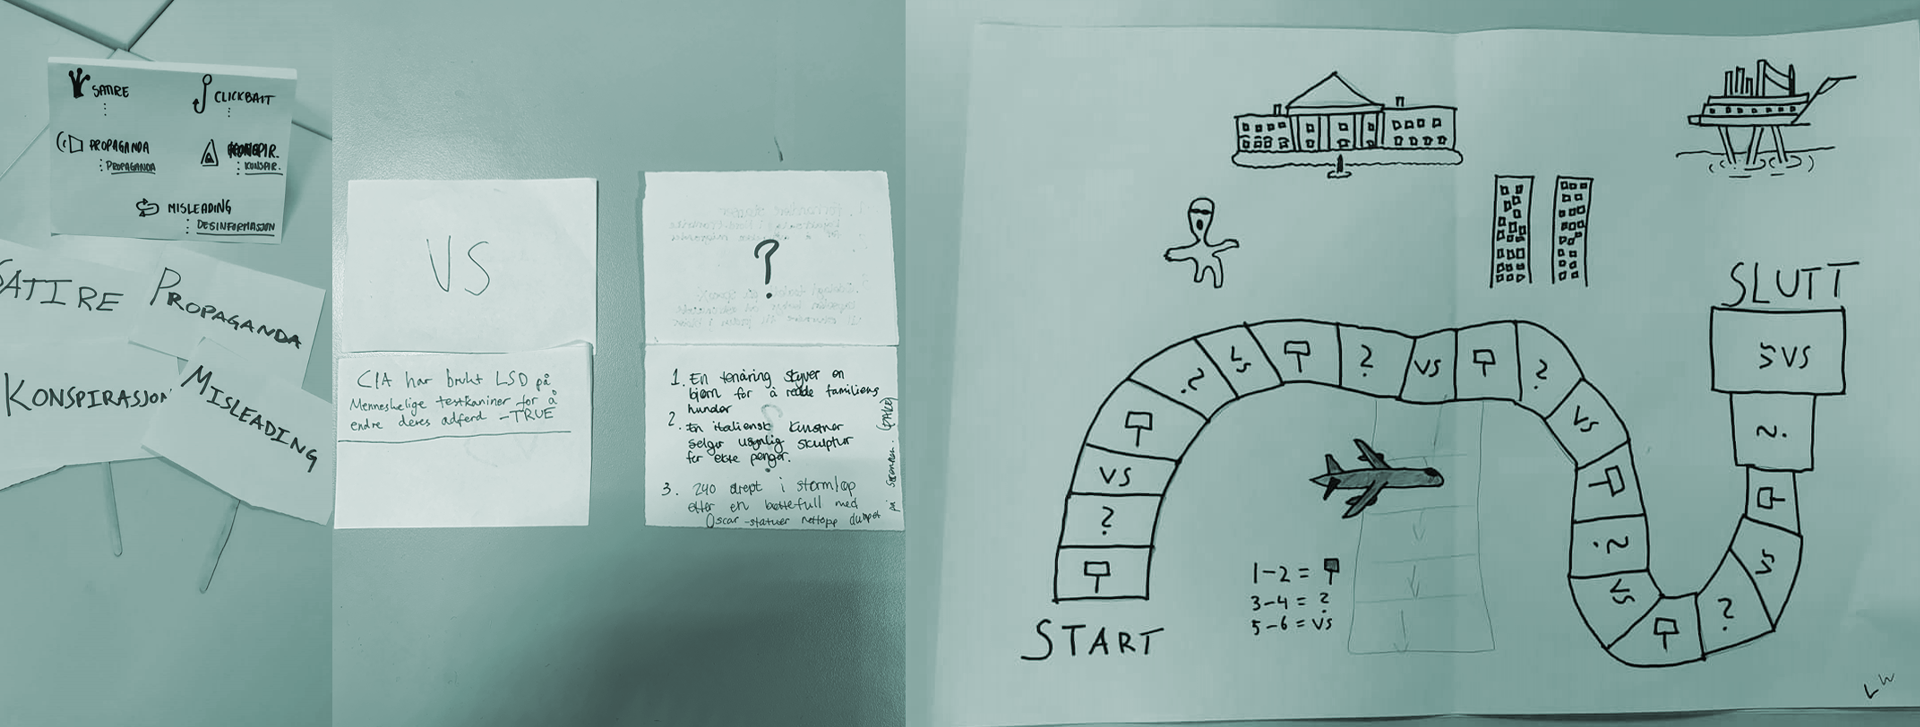 SATIRE
CLICKBAIT
PROPAGANDA
PROPAGANDA
KONSPIR.
KONSPIR.
MISLEADING
DESINFORMASJON
SATIRE
PROPAGANDA
KONSPIRASJON
MISLEADING
VS
CIA har brukt LSD på
Menneskelige testkaniner for å
endre deres adferd -TRUE
?
1. En tenåring skyver en
bjørn for å redde familiens
hunder
2. En italiensk kunstner
selger usynlig skulptur
for ekte penger.
3. 240 drept i stormløp
etter en bøttefull med
Oscar-statuer nettopp dumpet
på Strømmen. (FAKE)
SLUTT
3 VS
?
?
VS
?
VS
?
VS
?
VS
?
VS
?
VS
?
1-2 =
3-4 = ?
5-6 = VS
START
LW